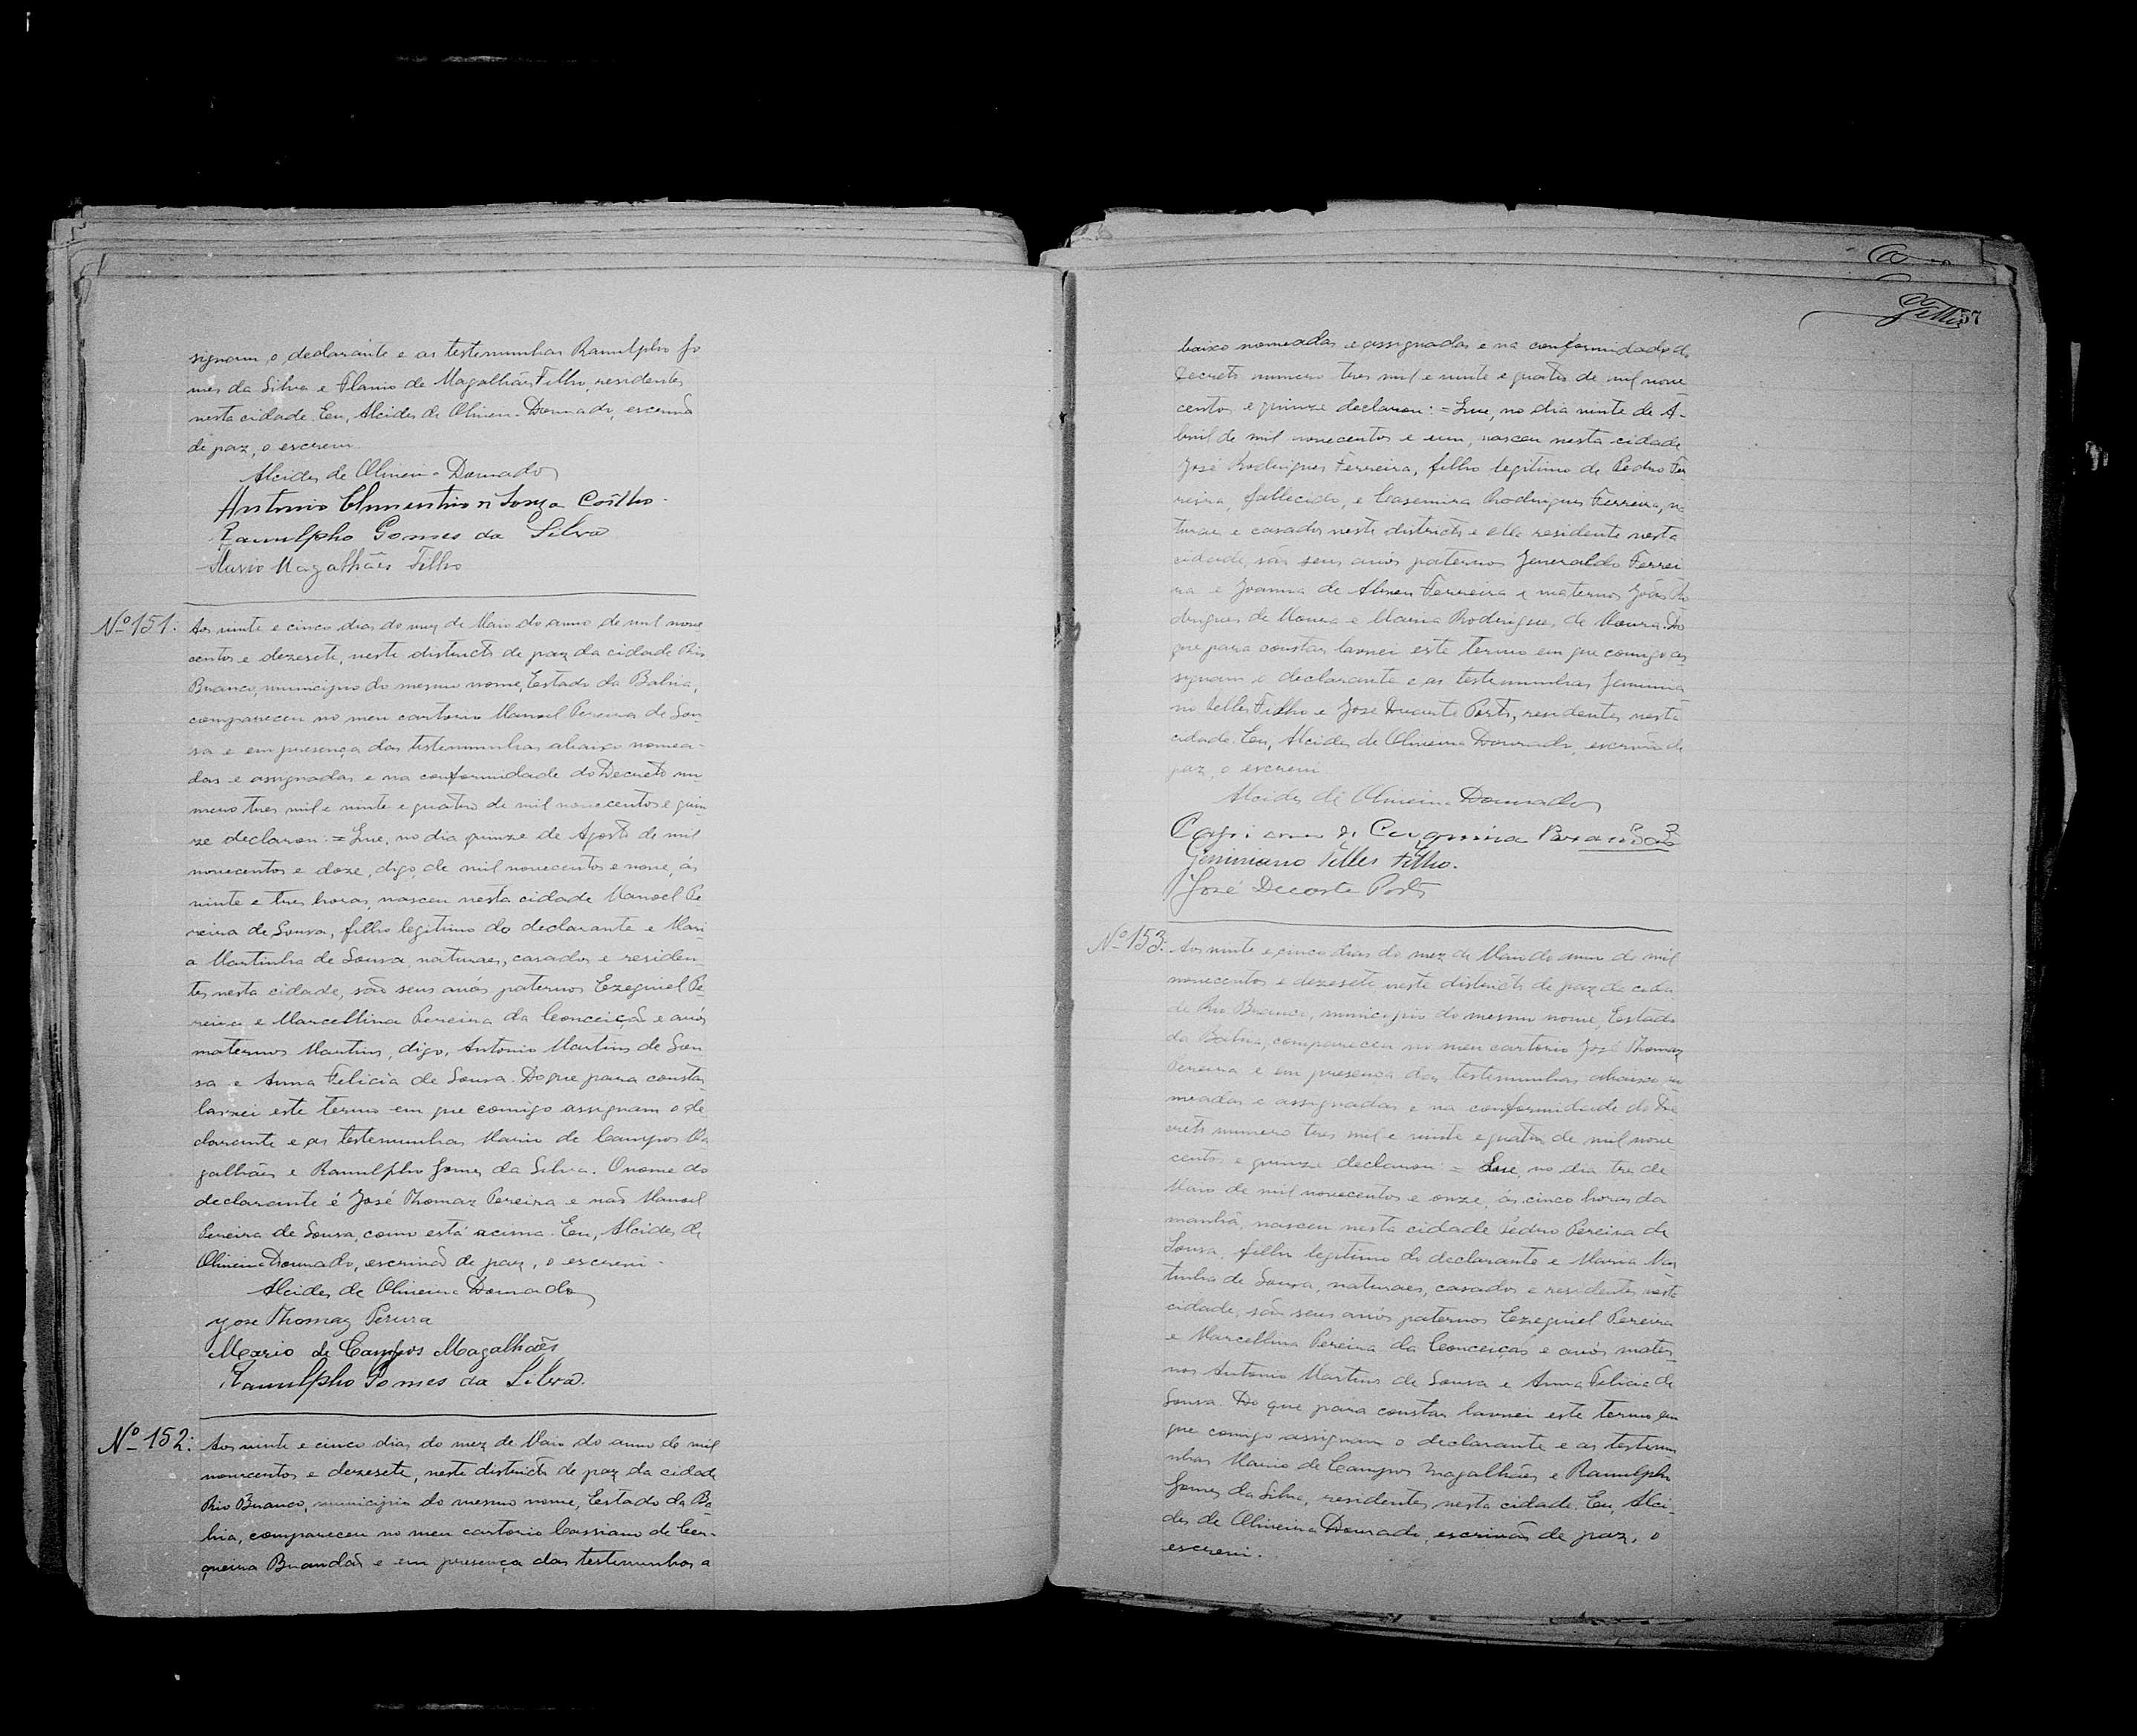 signam o declarante e as testemunhas Ranulpho Go
mes da Silva e Flavio de Magalhães Filho, residentes
nesta cidade. Eu, Alcides de Oliveira Dourado, escrivão
de paz, o escrevi.
Alcides de Oliveira Dourado
Antonio Clementino de Souza Coêlho.
Ranulpho Gomes da Silva
Flavio Magalhães Filho
Nº 151: Aos vinte e cinco dias do mez de Maio do anno de mil nove
centos e dezesete, neste districto de paz da cidade Rio
Branco, municipio do mesmo nome, Estado da Bahia,
compareceu no meu cartorio Manoel Pereira de Sou
sa e em presença das testemunhas abaixo nomea-
das e assignadas e na conformidade do Decreto nu
mero tres mil e vinte e quatro de mil novecentos e quin
ze declarou: = Que, no dia quinze de Agosto de mil
novecentos e doze, digo, de mil novecentos e nove, ás
vinte e tres horas, nasceu nesta cidade Manoel Pe
reira de Sousa, filho legitimo do declarante e Mari
a Martinha de Sousa, naturaes, casados e residen
tes nesta cidade, são seus avós paternos Ezequiel Pe
reira e Marcellina Pereira da Conceição e avós
maternos Martins, digo, Antonio Martins de Sou
sa e Anna Felicia de Sousa. Do que para constar
lavrei este termo em que comigo assignam o de
clarante e as testemunhas Mario de Campos Ma
galhães e Ranulpho Gomes da Silva. O nome do
declarante é José Thomaz Pereira e não Manoel
Pereira de Sousa, como está acima. Eu, Alcides de
Oliveira Dourado, escrivão de paz, o escrevi.
Alcides de Oliveira Dourado
Jose Thomaz Pereira
Mario de Campos Magalhães
Ranulpho Gomes da Silva.
Nº 152: Aos vinte e cinco dias do mez de Maio do anno de mil
novecentos e dezesete, neste districto de paz da cidade
Rio Branco, municipio do mesmo nome, Estado da Ba
hia, compareceu no meu cartorio Cassiano de Cer-
queira Brandão e em presença das testemunhas a
57
baixo nomeadas e assignadas e na conformidade do
Decreto numero tres mil e vinte e quatro de mil nove
centos e quinze declarou: = Que, no dia vinte de A-
bril de mil novecentos e um, nasceu nesta cidade
José Rodrigues Ferreira, filho legitimo de Pedro Fer
reira, fallecido, e Casemira Rodrigues Ferreira, na
turaes e casados neste districto e ella residente nesta
cidade, são seus avós paternos Generaldo Ferrei
ra e Joanna de Abreu Ferreira e maternos João Ro
drigues de Moura e Maria Rodrigues de Moura. Do
que para constar lavrei este termo em que comigo as
signam o declarante e as testemunhas Geminia
no Telles Filho e José Duarte Porto, residentes nesta
cidade. Eu, Alcides de Oliveira Dourado, escrivão de
paz, o escrevi.
Alcides de Oliveira Dourado
Cassiano de Cerqueira Brandão
Geminiano Telles Filho.
José Duarte Porto
Nº 153: Aos vinte e cinco dias do mez de Maio do anno de mil
novecentos e dezesete, neste districto de paz da cida
de Rio Branco, municipio do mesmo nome, Estado
da Bahia, compareceu no meu cartorio José Thomaz
Pereira e em presença das testemunhas abaixo no
meadas e assignadas e na conformidade do De
creto numero tres mil e vinte e quatro de mil nove
centos e quinze declarou: = Que, no dia tres de
Maio de mil novecentos e onze, ás cinco horas da
manhã, nasceu nesta cidade Pedro Pereira de
Sousa, filho legitimo do declarante e Maria Mar
tinha de Sousa, naturaes, casados e residentes nesta
cidade, são seus avós paternos Ezequiel Pereira
e Marcellina Pereira da Conceição e avós mater
nos Antonio Martins de Sousa e Anna Felicia de
Sousa. Do que para constar lavrei este termo em
que comigo assignam o declarante e as testemu
nhas Mario de Campos Magalhães e Ranulpho
Gomes da Silva, residentes nesta cidade. Eu, Alci-
des de Oliveira Dourado, escrivão de paz, o
escrevi.